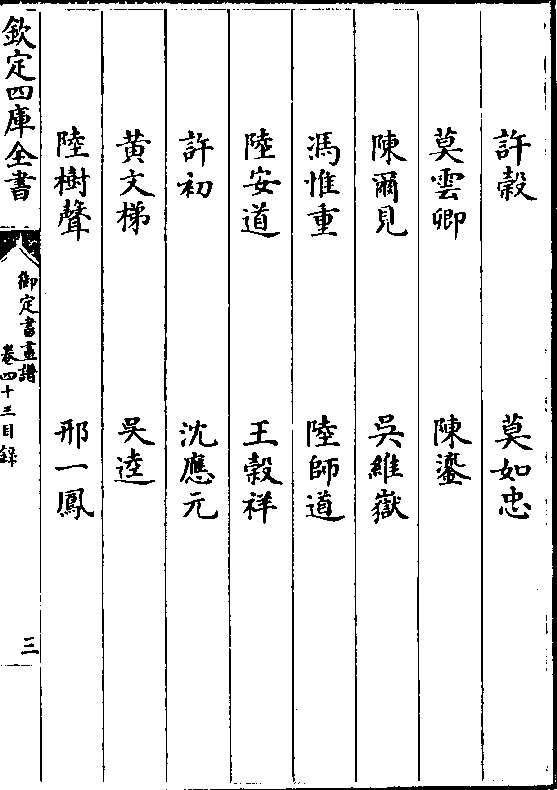 許穀　莫如忠
莫雲卿　陳鎏
陳爾見　吳維嶽
馮惟重　陸師道
陸安道　王穀祥
許初　沈應元
黃文梯　吳逵
陸樹聲　邢一鳳
欽定四庫全書
御定書畫譜
卷四十三目錄
三